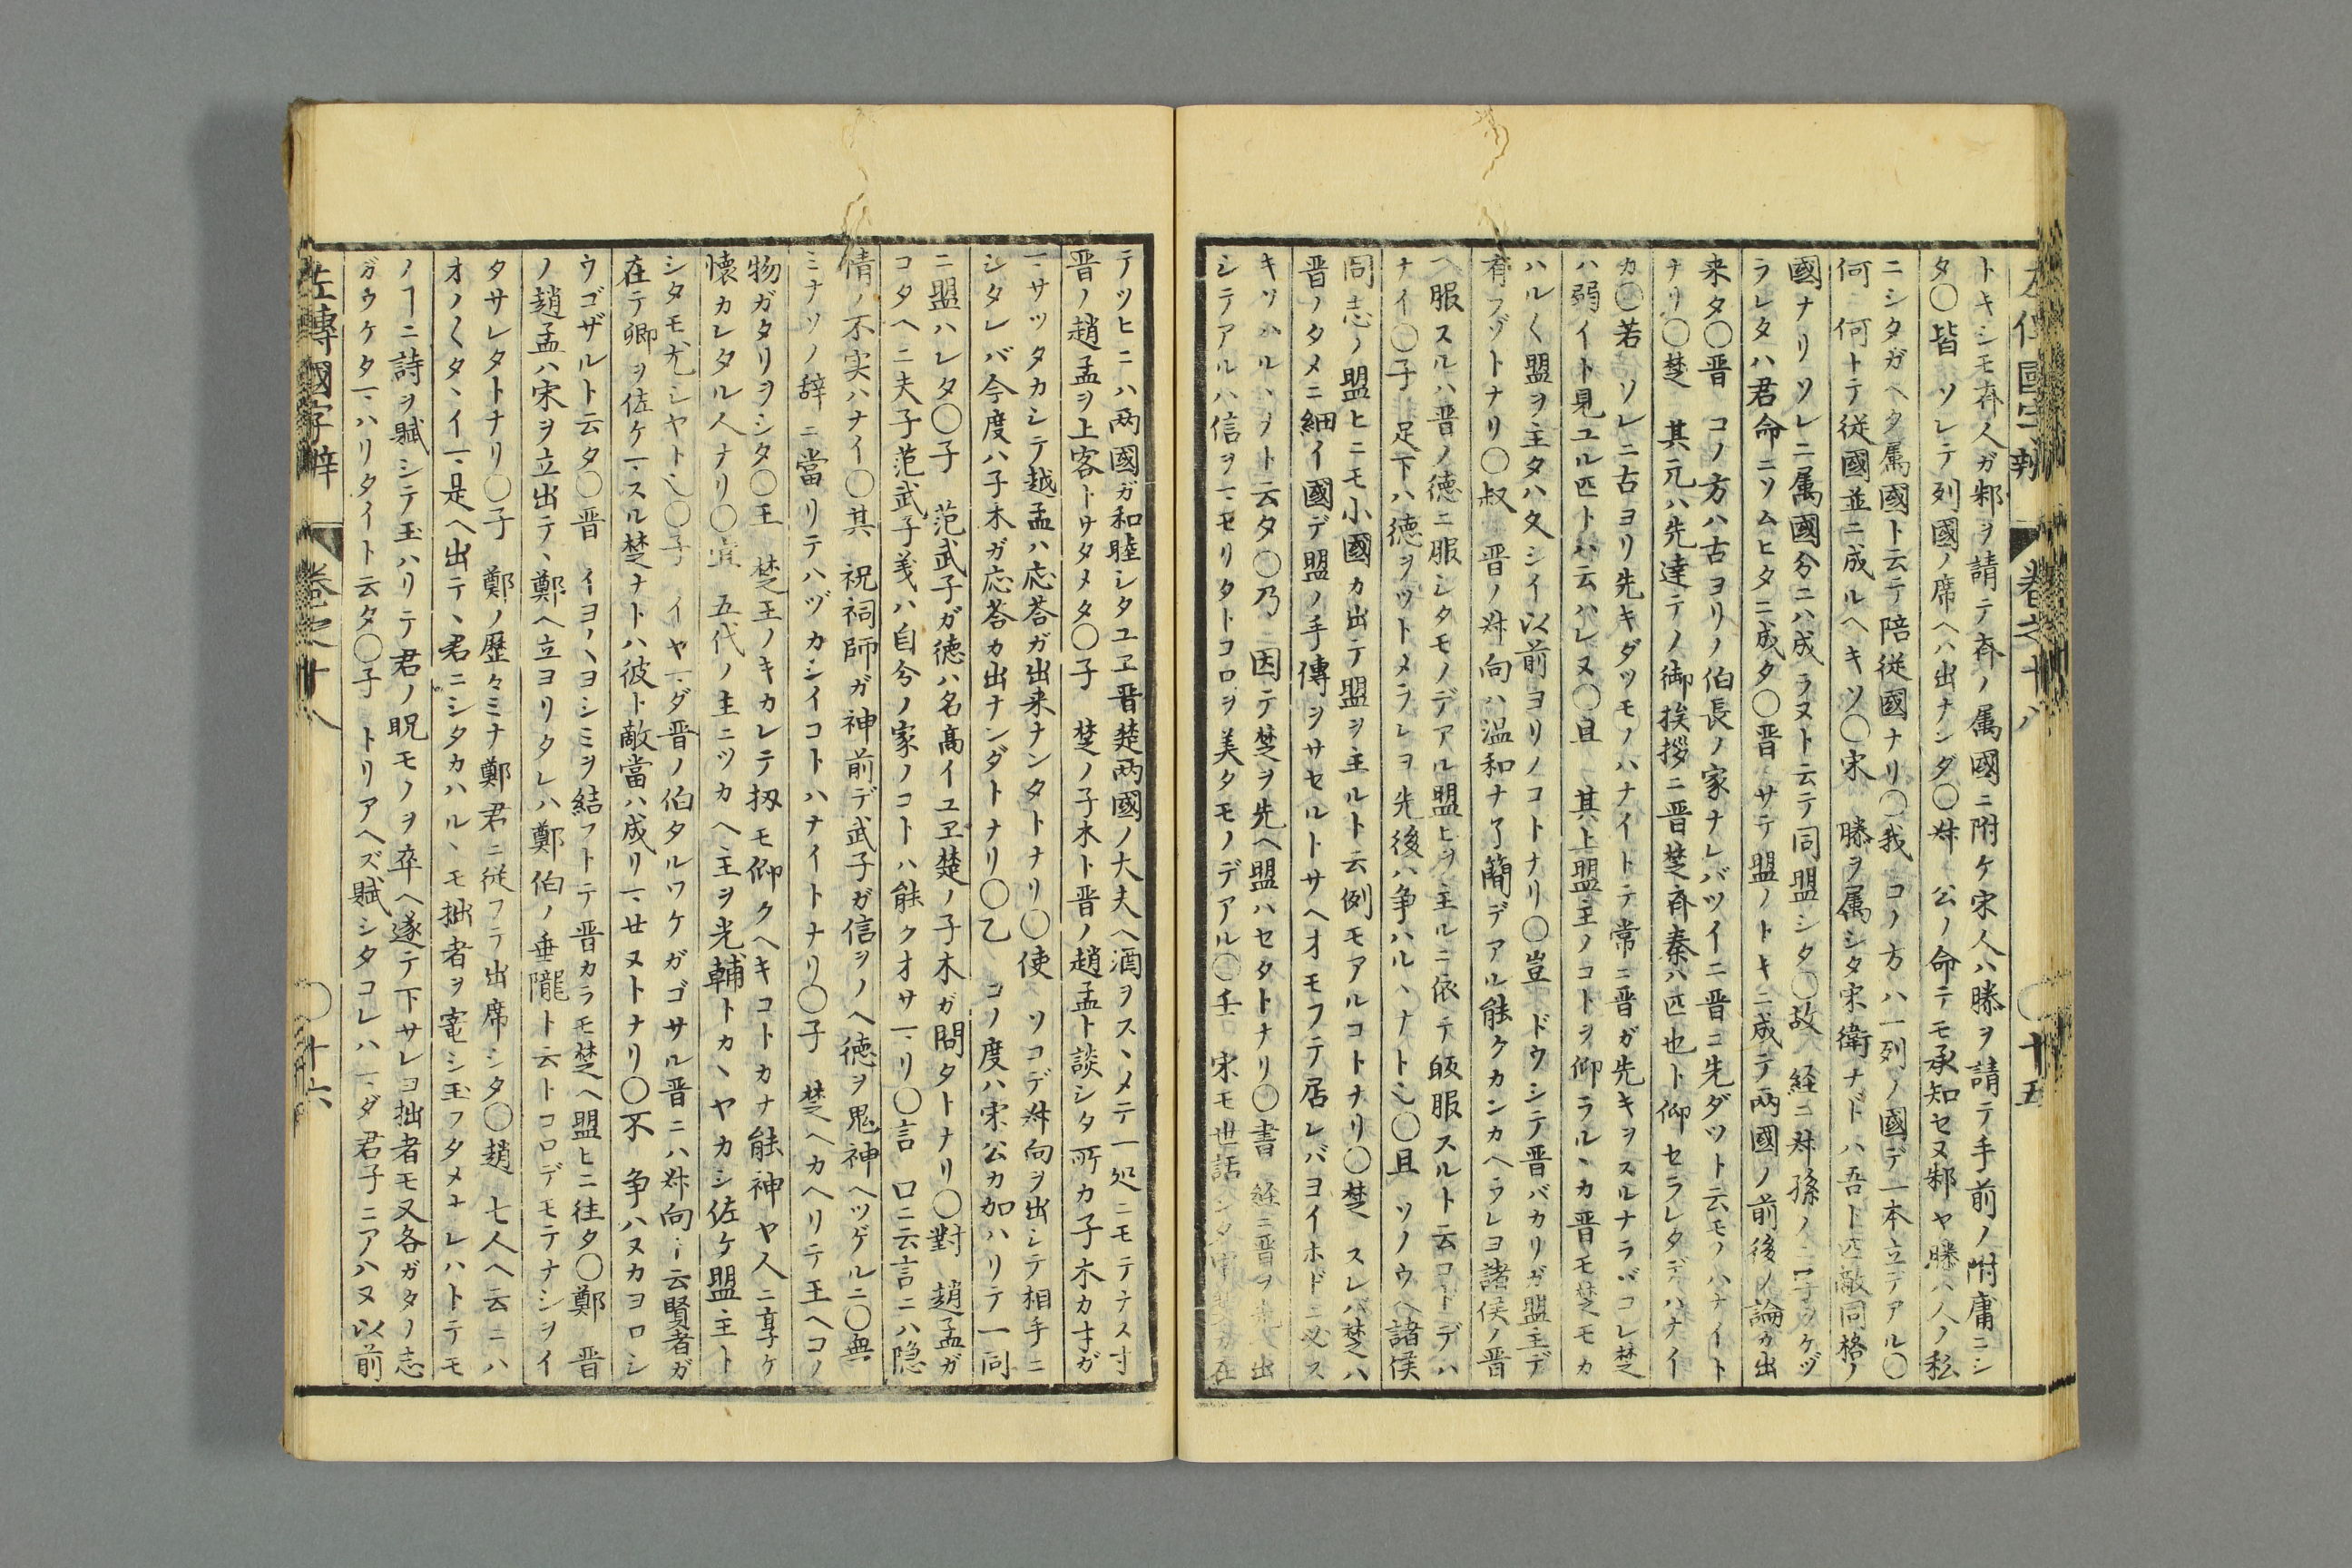 左傳國字辨 巻之十八 ○十五
トキシモ斉人ガ邾ヲ請テ斉ノ属國ニ附ケ宋人ハ滕ヲ請テ手前ノ附庸ニシ
タ○皆 ソレテ列國ノ席ヘハ出ナンダ○叔 公ノ命テモ承知セヌ邾ヤ滕ハ人ノ私
ニシタガヘタ属國ト云テ陪従國ナリ○我 コノ方ハ一列ノ國デ一本立デアル○
何 何トテ従國並ニ成ルヘキソ○宋 滕ヲ属シタ宋衛ナドハ吾ト匹敵同格ノ
國ナリソレニ属國分ニハ成ラヌト云テ同盟シタ○故 経ニ叔孫ノ二字ヲケヅ
ラレタハ君命ニソムヒタニ成タ○晋 サテ盟ノトキニ成テ兩國ノ前後ノ論カ出
来タ○晋 コノ方ハ古ヨリノ伯長ノ家ナレバツイニ晋ニ先ダツト云モノハナイト
ナリ○楚 其元ハ先達テノ御挨拶ニ晋楚斉秦ハ匹也ト仰セラレタデハナイ
カ○若 ソレニ古ヨリ先キダツモノハナイトテ常ニ晋ガ先キヲスルナラバコレ楚
ハ弱イト見ユル匹トハ云ハレヌ○且 其上盟主ノコトヲ仰ラルヽカ晋モ楚モカ
ハル〱盟ヲ主タハ久シイ以前ヨリノコトナリ○豈 ドウシテ晋バカリガ盟主デ
有フゾトナリ○叔 晋ノ叔向ハ温和ナ了簡デアル能クカンカヘラレヨ諸侯ノ晋
ヘ服スルハ晋ノ徳ニ服シタモノデアル盟ヒヲ主ルニ依テ皈服スルト云コトデハ
ナイ○子 足下ハ徳ヲツトメラレヨ先後ハ争ハルヽナト也○且 ソノウヘ諸侯
同志ノ盟ヒニモ小國カ出テ盟ヲ主ルト云例モアルコトナリ○楚 スレバ楚ハ
晋ノタメニ細イ國デ盟ノ手傳ヲサセルトサヘオモフテ居レバヨイホドニ必ス
キソハルヽナト云タ○乃 因テ楚ヲ先ヘ盟ハセタトナリ○書 経ニ晋ヲ先ヘ出
シテアルハ信ヲマモリタトコロヲ美タモノデアル○壬 宋モ世話シタ
テツヒニハ兩國ガ和睦シタユヱ晋楚兩國ノ大夫ヘ酒ヲスヽメテ一処ニモテナス寸
晋ノ趙孟ヲ上客トサタメタ○子 楚ノ子木ト晋ノ趙孟ト談シタ所カ子木カ才ガ
マサツタカシテ趙孟ハ応荅ガ出来ナンタトナリ○使 ソコデ叔向ヲ出シテ相手ニ
シタレバ今度ハ子木ガ応荅カ出ナンダトナリ○乙 コノ度ハ宋公カ加ハリテ一同
ニ盟ハレタ○子 范武子ガ徳ハ名高イユヱ楚ノ子木ガ問タトナリ○對 趙孟ガ
コタヘニ夫子范武子義ハ自分ノ家ノコトハ能クオサマリ○言 口ニ云言ニハ隠
情ノ不実ハナイ○其 祝祠師ガ神前デ武子ガ信ヲノヘ徳ヲ鬼神ヘツゲルニ○無
ミナソノ辞ニ當リテハヅカシイコトハナイトナリ○子 楚ヘカヘリテ王ヘコノ
物ガタリヲシタ○王 楚王ノキカレテ扨モ仰クヘキコトカナ能神ヤ人ニ享ケ
懐カレタル人ナリ○宜 五代ノ主ニツカヘ主ヲ光輔トカヽヤカシ佐ケ盟主ト
シタモ尤シヤト也○子 イヤマダ晋ノ伯タルワケガゴサル晋ニハ叔向ト云賢者ガ
在テ卿ヲ佐ケマスル楚ナトハ彼ト敵當ハ成リマセヌトナリ○不 争ハヌカヨロシ
ウゴザルト云タ○晋 イヨ〱ヨシミヲ結フトテ晋カラモ楚ヘ盟ヒニ往タ○鄭 晋
ノ趙孟ハ宋ヲ立出テヽ鄭ヘ立ヨリタレハ鄭伯ノ垂隴ト云トコロデモテナシヲイ
タサレタトナリ○子 鄭ノ歴々ミナ鄭君ニ従フテ出席シタ○趙 七人ヘ云ニハ
オノ〱タヽイマ是ヘ出テヽ君ニシタカハルヽモ拙者ヲ寵シ玉フタメナレハトテモ
ノヿニ詩ヲ賦シテ玉ハリテ君ノ貺モノヲ卒ヘ遂テ下サレヨ拙者モ又各ガタノ志
ガウケタマハリタイト云タ○子 トリアヘズ賦シタコレハマダ君子ニアハヌ以前
左傳國字辨 巻之十八 ○十六